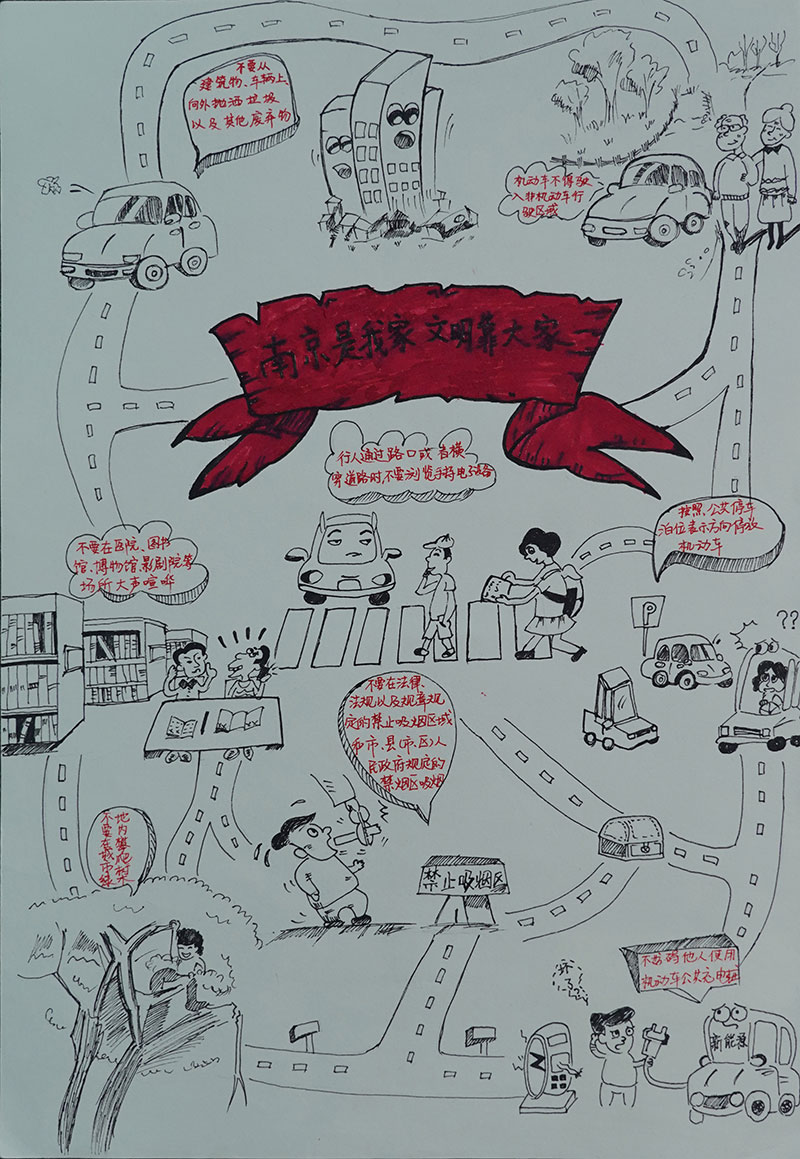 不要从
建筑物、车辆上
向外抛洒垃圾
以及其他废弃物
机动车不得驶
入非机动车行
驶区域
南京是我家 文明靠大家
行人通过路口或者横
穿道路时,不要浏览手持电子设备
按照公共停车
泊位表示方向停放
机动车
不要在医院、图书
馆、博物馆、影剧院等
场所大声喧哗
P
??
不要在法律、
法规以及规章规
定的禁止吸烟区域
和市、县(市、区)人
民政府规定的
禁烟区吸烟
不要在城市绿
地内攀爬树木
禁止吸烟区
不妨碍他人使用
机动车公共充电桩
新能源
N